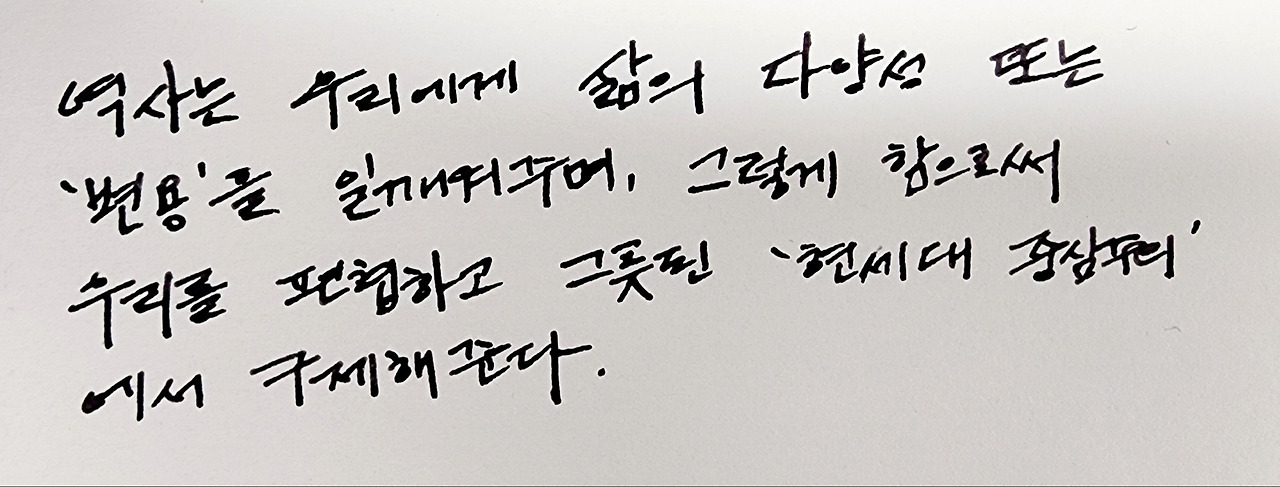 역사는 우리에게 삶의 다양성 또는
'변용'을 일깨워주며, 그렇게 함으로써
우리를 편협하고 그릇된 '현세대 중심주의'
에서 구제해준다.